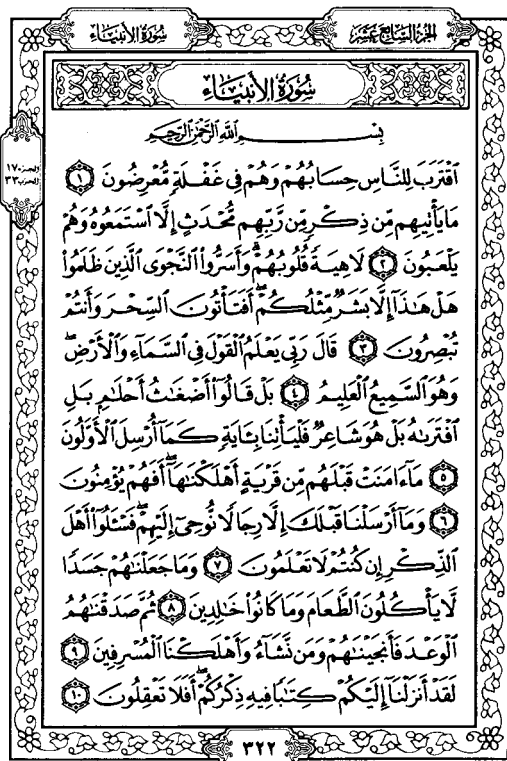 الجُزءُ السَّابِعَ عَشَرَ
سُورَةُ الأَنبِيَاء
سُورَةُ الأَنبِيَاء
الجزء ١٧
الحزب ٣٣
بِسۡمِ ٱللَّهِ ٱلرَّحۡمَٰنِ ٱلرَّحِيمِ
ٱقۡتَرَبَ لِلنَّاسِ حِسَابُهُمۡ وَهُمۡ فِي غَفۡلَةٖ مُّعۡرِضُونَ ١
مَا يَأۡتِيهِم مِّن ذِكۡرٖ مِّن رَّبِّهِم مُّحۡدَثٍ إِلَّا ٱسۡتَمَعُوهُ وَهُمۡ
يَلۡعَبُونَ ٢ لَاهِيَةٗ قُلُوبُهُمۡۗ وَأَسَرُّواْ ٱلنَّجۡوَى ٱلَّذِينَ ظَلَمُواْ
هَلۡ هَٰذَآ إِلَّا بَشَرٞ مِّثۡلُكُمۡۖ أَفَتَأۡتُونَ ٱلسِّحۡرَ وَأَنتُمۡ
تُبۡصِرُونَ ٣ قَالَ رَبِّي يَعۡلَمُ ٱلۡقَوۡلَ فِي ٱلسَّمَآءِ وَٱلۡأَرۡضِۖ
وَهُوَ ٱلسَّمِيعُ ٱلۡعَلِيمُ ٤ بَلۡ قَالُوٓاْ أَضۡغَٰثُ أَحۡلَٰمِۭ بَلِ
ٱفۡتَرَىٰهُ بَلۡ هُوَ شَاعِرٞ فَلۡيَأۡتِنَا بِـَٔايَةٖ كَمَآ أُرۡسِلَ ٱلۡأَوَّلُونَ
٥ مَآ ءَامَنَتۡ قَبۡلَهُم مِّن قَرۡيَةٍ أَهۡلَكۡنَٰهَآۖ أَفَهُمۡ يُؤۡمِنُونَ
٦ وَمَآ أَرۡسَلۡنَا قَبۡلَكَ إِلَّا رِجَالٗا نُّوحِيٓ إِلَيۡهِمۡۖ فَسۡـَٔلُوٓاْ أَهۡلَ
ٱلذِّكۡرِ إِن كُنتُمۡ لَا تَعۡلَمُونَ ٧ وَمَا جَعَلۡنَٰهُمۡ جَسَدٗا
لَّا يَأۡكُلُونَ ٱلطَّعَامَ وَمَا كَانُواْ خَٰلِدِينَ ٨ ثُمَّ صَدَقۡنَٰهُمُ
ٱلۡوَعۡدَ فَأَنجَيۡنَٰهُمۡ وَمَن نَّشَآءُ وَأَهۡلَكۡنَا ٱلۡمُسۡرِفِينَ ٩
لَقَدۡ أَنزَلۡنَآ إِلَيۡكُمۡ كِتَٰبٗا فِيهِ ذِكۡرُكُمۡۚ أَفَلَا تَعۡقِلُونَ ١٠
٣٢٢